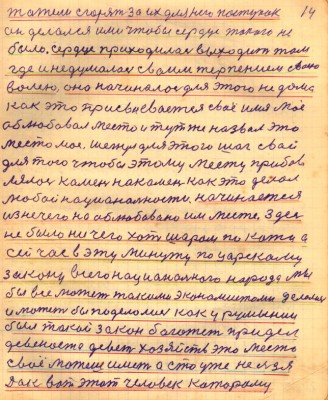 14
и делался или чтобы сердце такого не
было, сердце приходилось выходить там
где и недумалось своим терпением свою
волею, оно начиналось для этого не дома
как это присвысвается своё имя моё
облюбовал место и тут же назвал это
место мое, шенул для этого шаг свой
для того чтобы этому месту прибов
лялось камен накамен как это делал
любой национальности, начинается
изнечего но облюбовано им место. Здес
не было ничего хот шаром по кати а
сей час в эту минуту по царскому
закону внего национального народа мы
бы все может такими экономистами делалса
и может бы поделомса как у румынии
был такой закон богатет придел
девеноста девет хозяйств это место
своё можеш имет а сто уже не лзя
Дак вот этот человек каторому